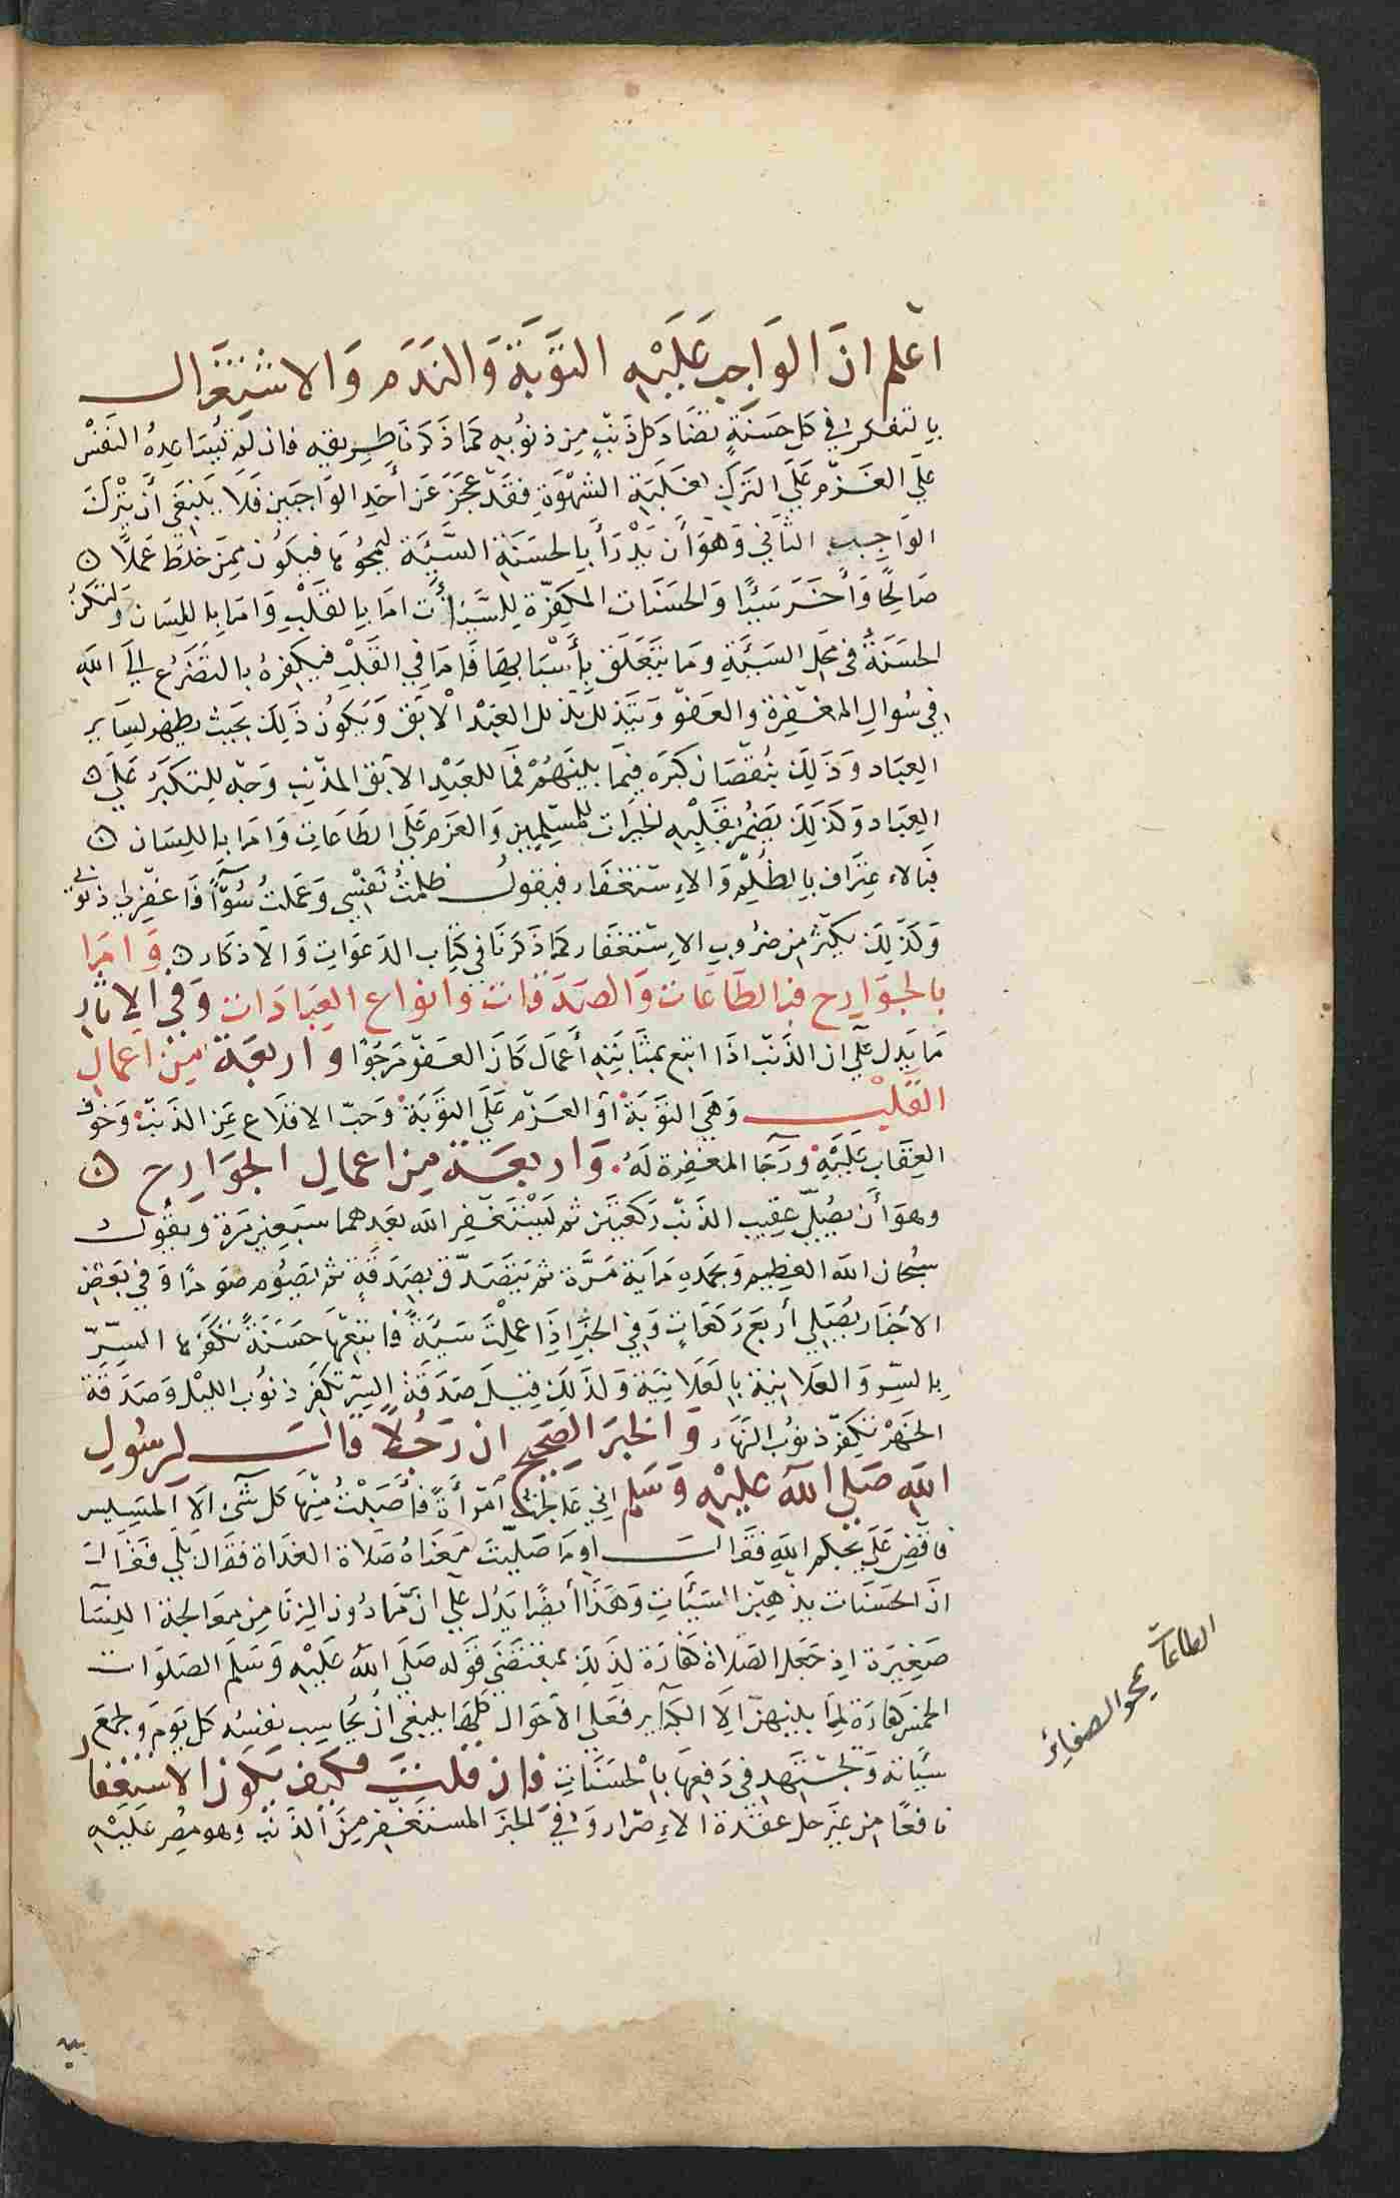 اعلم ان الواجب عليه التوبة والندم والاشتغال
بالتفكر في كل حسنة تضاد كل ذنب من ذنوبه كما ذكرنا طريقه فان لم تساعده النفس
علي العزم علي الترك لغلبة الشهوة فقد عجز عن أحد الواجبين فلا ينبغي أن يترك
الواجب الثاني وهو أن يدرأ بالحسنة السيئة ليمحوها فيكون ممن خلط عملا
صالحا وأخر سيئا والحسنات المكفرة للسيئات اما بالقلب واما باللسان ولتكن
الحسنة في محل السيئة وما يتعلق بأسبابها فاما في القلب فيكفره بالتضرع الى الله
في سوال المغفرة والعفو ويتذلل تذلل العبد الآبق ويكون ذلك بحيث يظهر لساير
العباد وذلك بنقصان كبره فيما بينهم فما للعبد الآبق المذنب وجه للتكبر على
العباد وكذلك يضمر بقلبه الخيرات للمسلمين والعزم على الطاعات واما باللسان
فبالاعتراف بالظلم والاستغفار فيقول ظلمت نفسي وعملت سوءا فاغفر لي ذنوبي
وكذلك يكثر من ضروب الاستغفار كما ذكرنا في كتاب الدعوات والأذكار واما
بالجوارح فبالطاعات والصدقات وانواع العبادات وفي الاثار
ما يدل على ان الذنب اذا اتبع بثمانية أعمال كان العفو مرجوا واربعة من اعمال
القلب وهي التوبة أو العزم على التوبة وحب الاقلاع عن الذنب وخوف
العقاب عليه ورجا المغفرة له واربعة من اعمال الجوارح
وهو أن يصلي عقيب الذنب ركعتين ثم ليستغفر الله بعدهما سبعين مرة ويقول
سبحان الله العظيم وبحمده ماية مرة ثم يتصدق بصدقة ثم يصوم صوما وفي بعض
الأخبار يصلي أربع ركعات وفي الخبر اذا عملت سيئة فاتبعها حسنة تكفرها السر
بالسر والعلانية بالعلانية ولذلك قيل صدقة السر تكفر ذنوب الليل وصدقة
الجهر تكفر ذنوب النهار والخبر الصحيح ان رجلا قال لرسول
الله صلي الله عليه وسلم اني عالجت امرأة فأصبت منها كل شئ الا المسيس
فاقض علي بحكم الله فقال أوما صليت معنا صلاة الغداة فقال بلي فقال
ان الحسنات يذهبن السيئات وهذا أيضا يدل علي ان ما دون الزنا من معالجة النسا
صغيرة اذ جعل الصلاة كفارة لذلك بمقتضى قوله صلي الله عليه وسلم الصلوات
الخمس كفارة لما بينهن الا الكباير فعلي الأحوال كلها ينبغي أن يحاسب نفسه كل يوم ويجمع
سياته ويجتهد في دفعها بالحسنات فان قلت فكيف يكون الاستغفار
نافعا من غير حل عقدة الاصرار وفي الخبر المستغفر من الذنب وهو مصر عليه
الطاعات يمحوا الصغائر